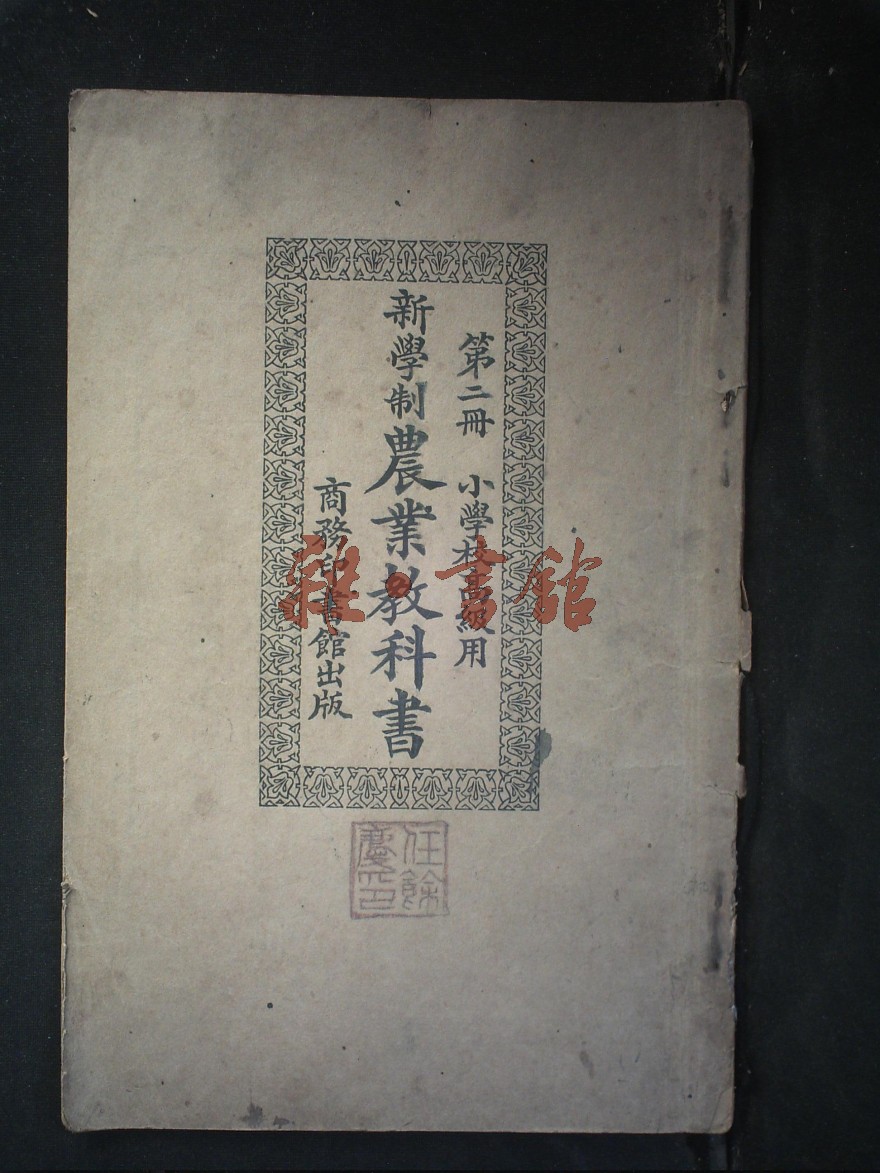 第二冊 小學校高級用
新學制農業教科書
商務印書館出版
任餘慶印
雜·書館